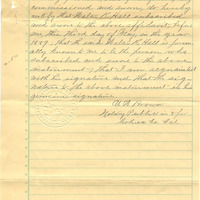 commissioned and sworn, do hereby
that Walter R. Hall subscribed
and swore to the above affidavit before
me this third day of May, in the year
1889, that the said Walter R. Hall is person
ally known to me to be the person who
subscribed and swore to the above
statement, that I am acquainted
with his signature and that the sig
nature to the above statement is his
genuine signature
Notary Public in & for
Co.